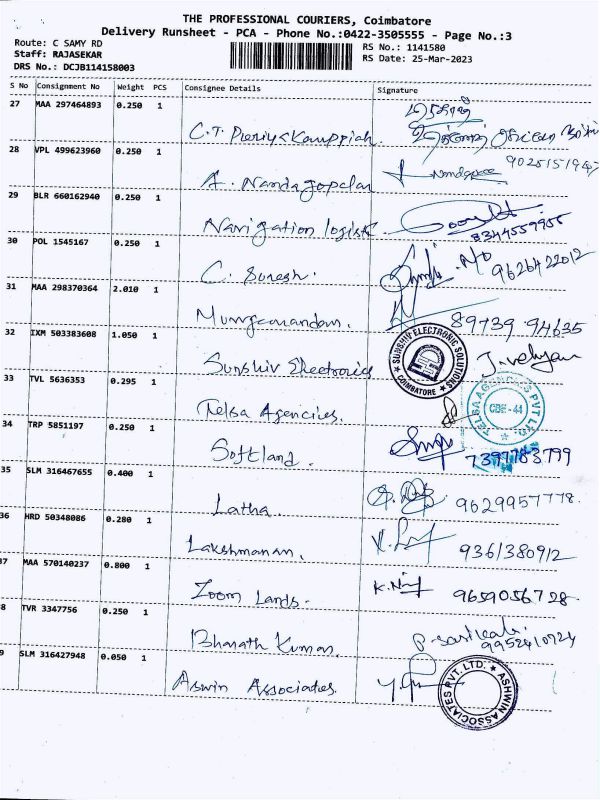 THE PROFESSIONAL COURIERS, Coimbatore
Delivery Runsheet - PCA - Phone No.:0422-3505555 - Page No.:3
Route: C SAMY RD
Staff: RAJASEKAR
DRS No.: DCJB114158003
RS No.: 1141580
RS Date: 25-Mar-2023
S No Consignment No Weight PCS Consignee Details Signature
27 MAA 297464893 0.250 1
C.T. Periya Karuppiah
28 VPL 499623960 0.250 1
A. Nandagopalan
29 BLR 660162940 0.250 1
Navigation logistk
8344559955
30 POL 1545167 0.250 1
C. Suresh. 9626422012
31 MAA 298370364 2.010 1
Muruganandam. 89739 94635
32 IXM 503383608 1.050 1
Sunshiv Electronics SUNSHIV ELECTRONIC SOLUTIONS COIMBATORE
33 TVL 5636353 0.295 1
Telsa Agencies. TELSA AGENCIES PVT LTD. CBE-44
34 TRP 5851197 0.250 1
Softland. 7397783799
35 SLM 316467655 0.400 1
Latha. 9629957778.
36 HRD 50348086 0.280 1
Lakshmanan. 9361380912
37 MAA 570140237 0.800 1
Zoom Lands. 9659056728
8 TVR 3347756 0.250 1
Bharath Kumar. 9952410724
9 SLM 316427948 0.050 1
Aswin Associates. ASHWIN ASSOCIATES PVT. LTD.